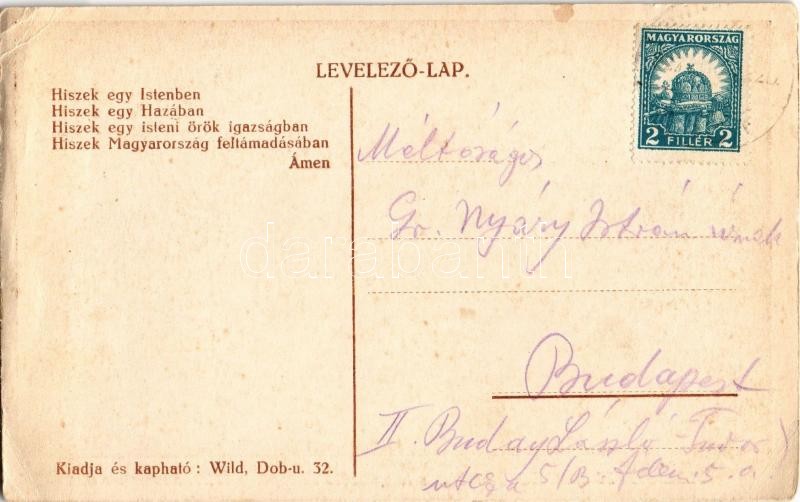 LEVELEZŐ-LAP.
MAGYARORSZÁG
2 FILLÉR 2
Hiszek egy Istenben
Hiszek egy Hazában
Hiszek egy isteni örök igazságban
Hiszek Magyarország feltámadásában
Ámen
Méltóságos
Gr. Nyáry István úrnak
darabanth
Budapest
II. Buday László
utca 5/B. 5.
Kiadja és kapható : Wild, Dob-u. 32.